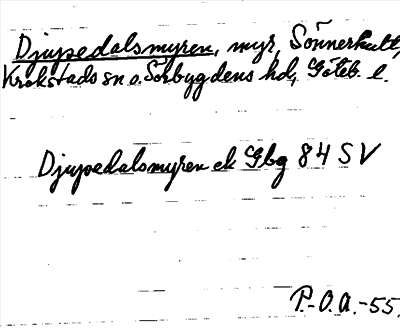 Djupedalsmyren, myr, Sönnerhult,
Krokstads sn o. Sörbygdens hd, Göteb. l.
Djupedalsmyren ek Gbg 84 SV
P.-O.A.-55.